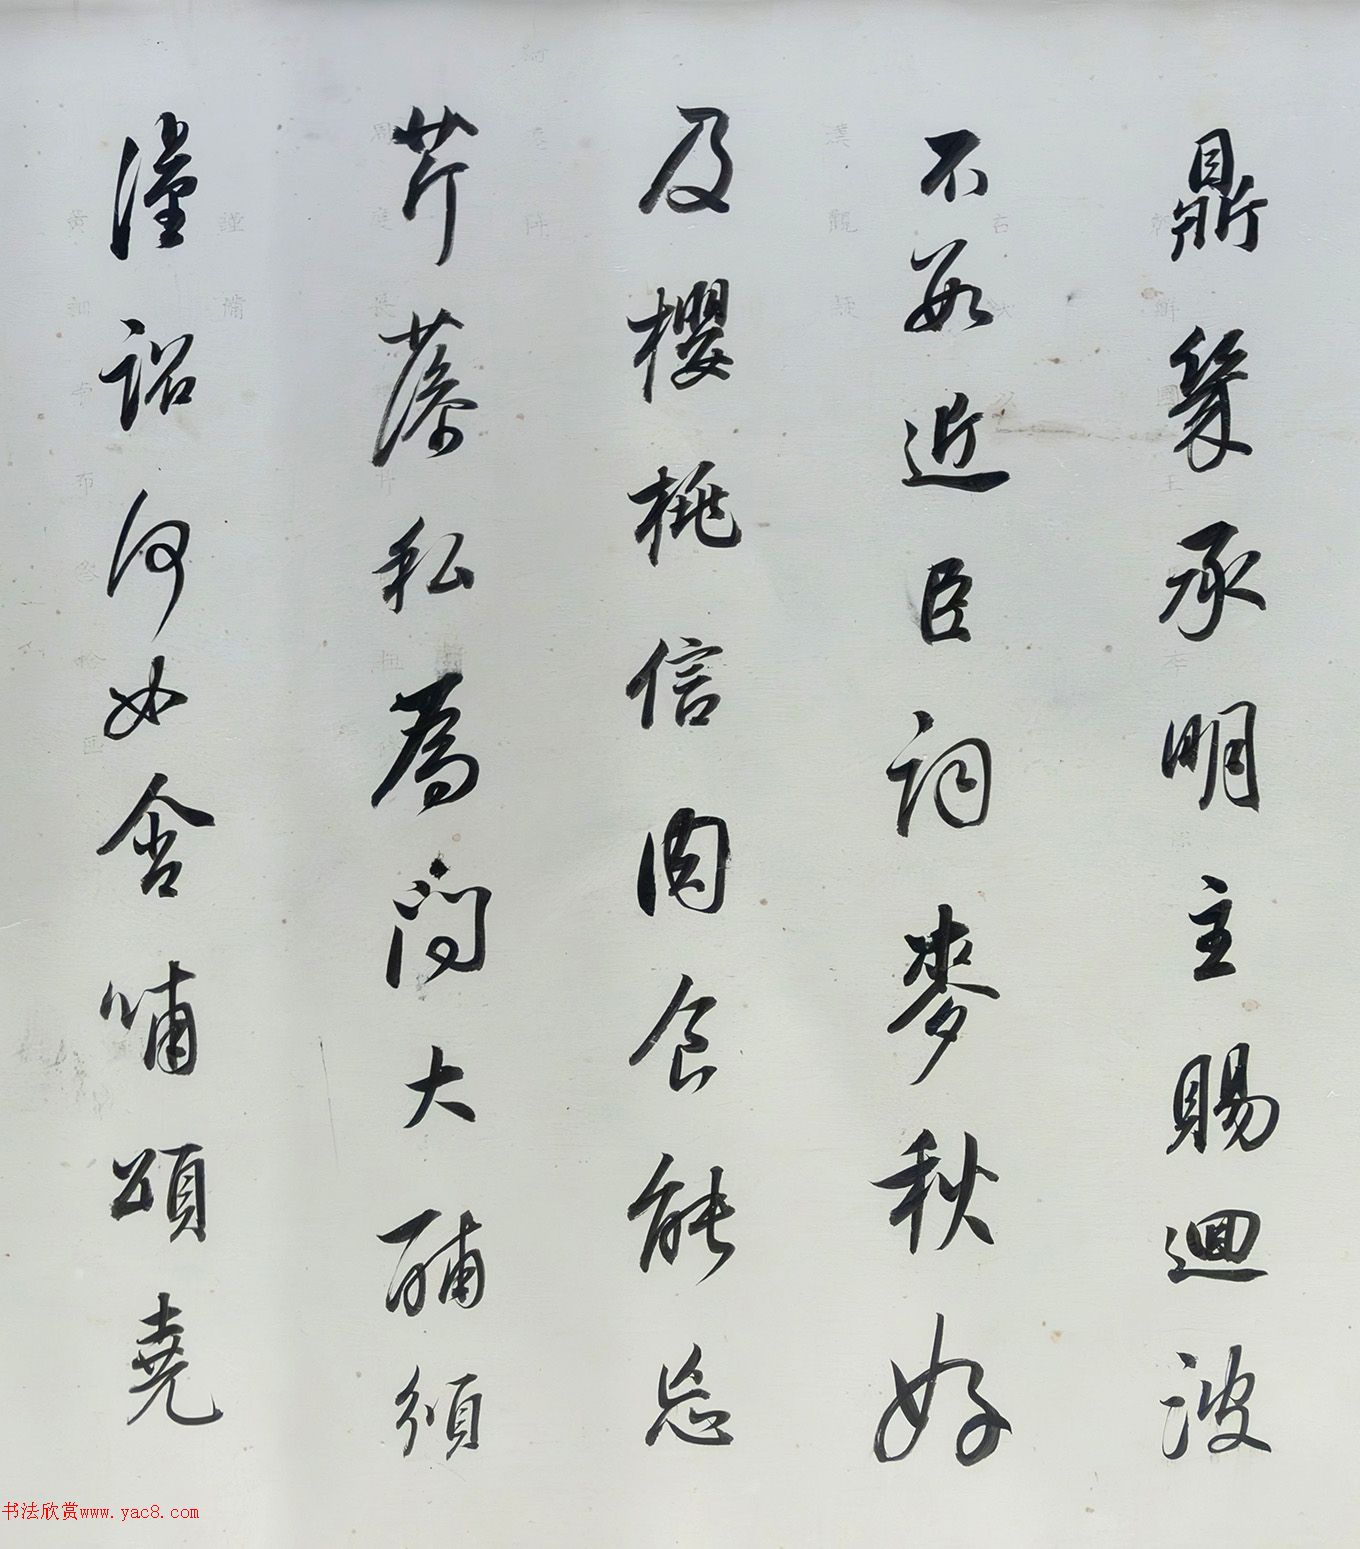 鼎承明主賜迴波
不數近臣詞麥秋好
及櫻桃信肉食能忘
芹藻私為問大酺須
詔何如含哺頌堯
书法欣赏www.yac8.com